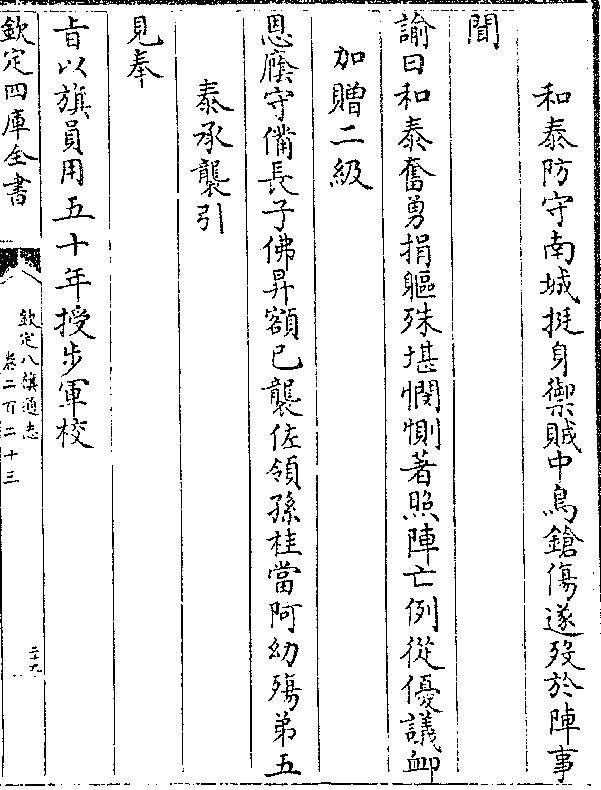 和泰防守南城挺身禦賊中鳥鎗傷遂歿於陣事
聞
諭曰和泰奮勇捐軀殊堪憫惻著照陣亡例從優議卹
加贈二級
恩廕守備長子佛昇額已襲佐領孫桂當阿幼殤第五
泰承襲引
見奉
旨以旗員用五十年授步軍校
欽定四庫全書
欽定八旗通志
卷二百二十三
二十九